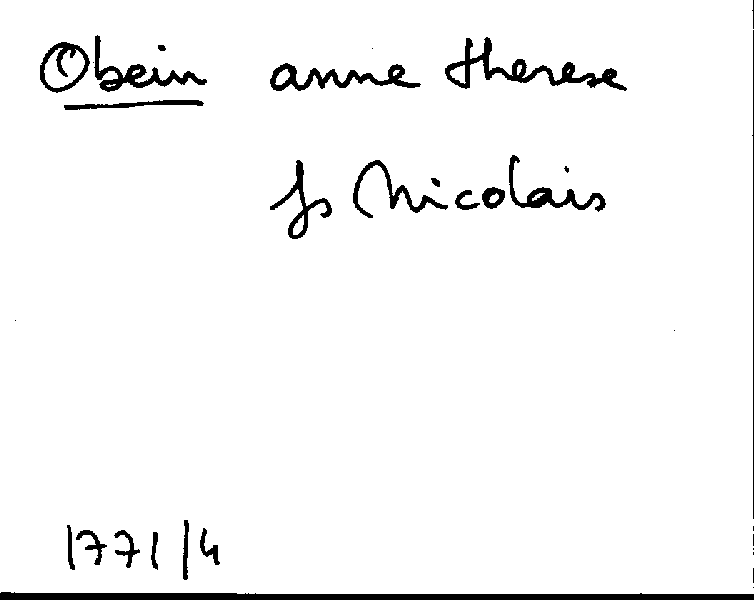 Obein anne therese
fs Nicolais
1771/4